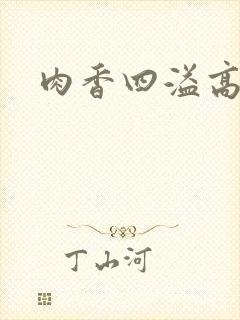 肉香四溢高
丁山河